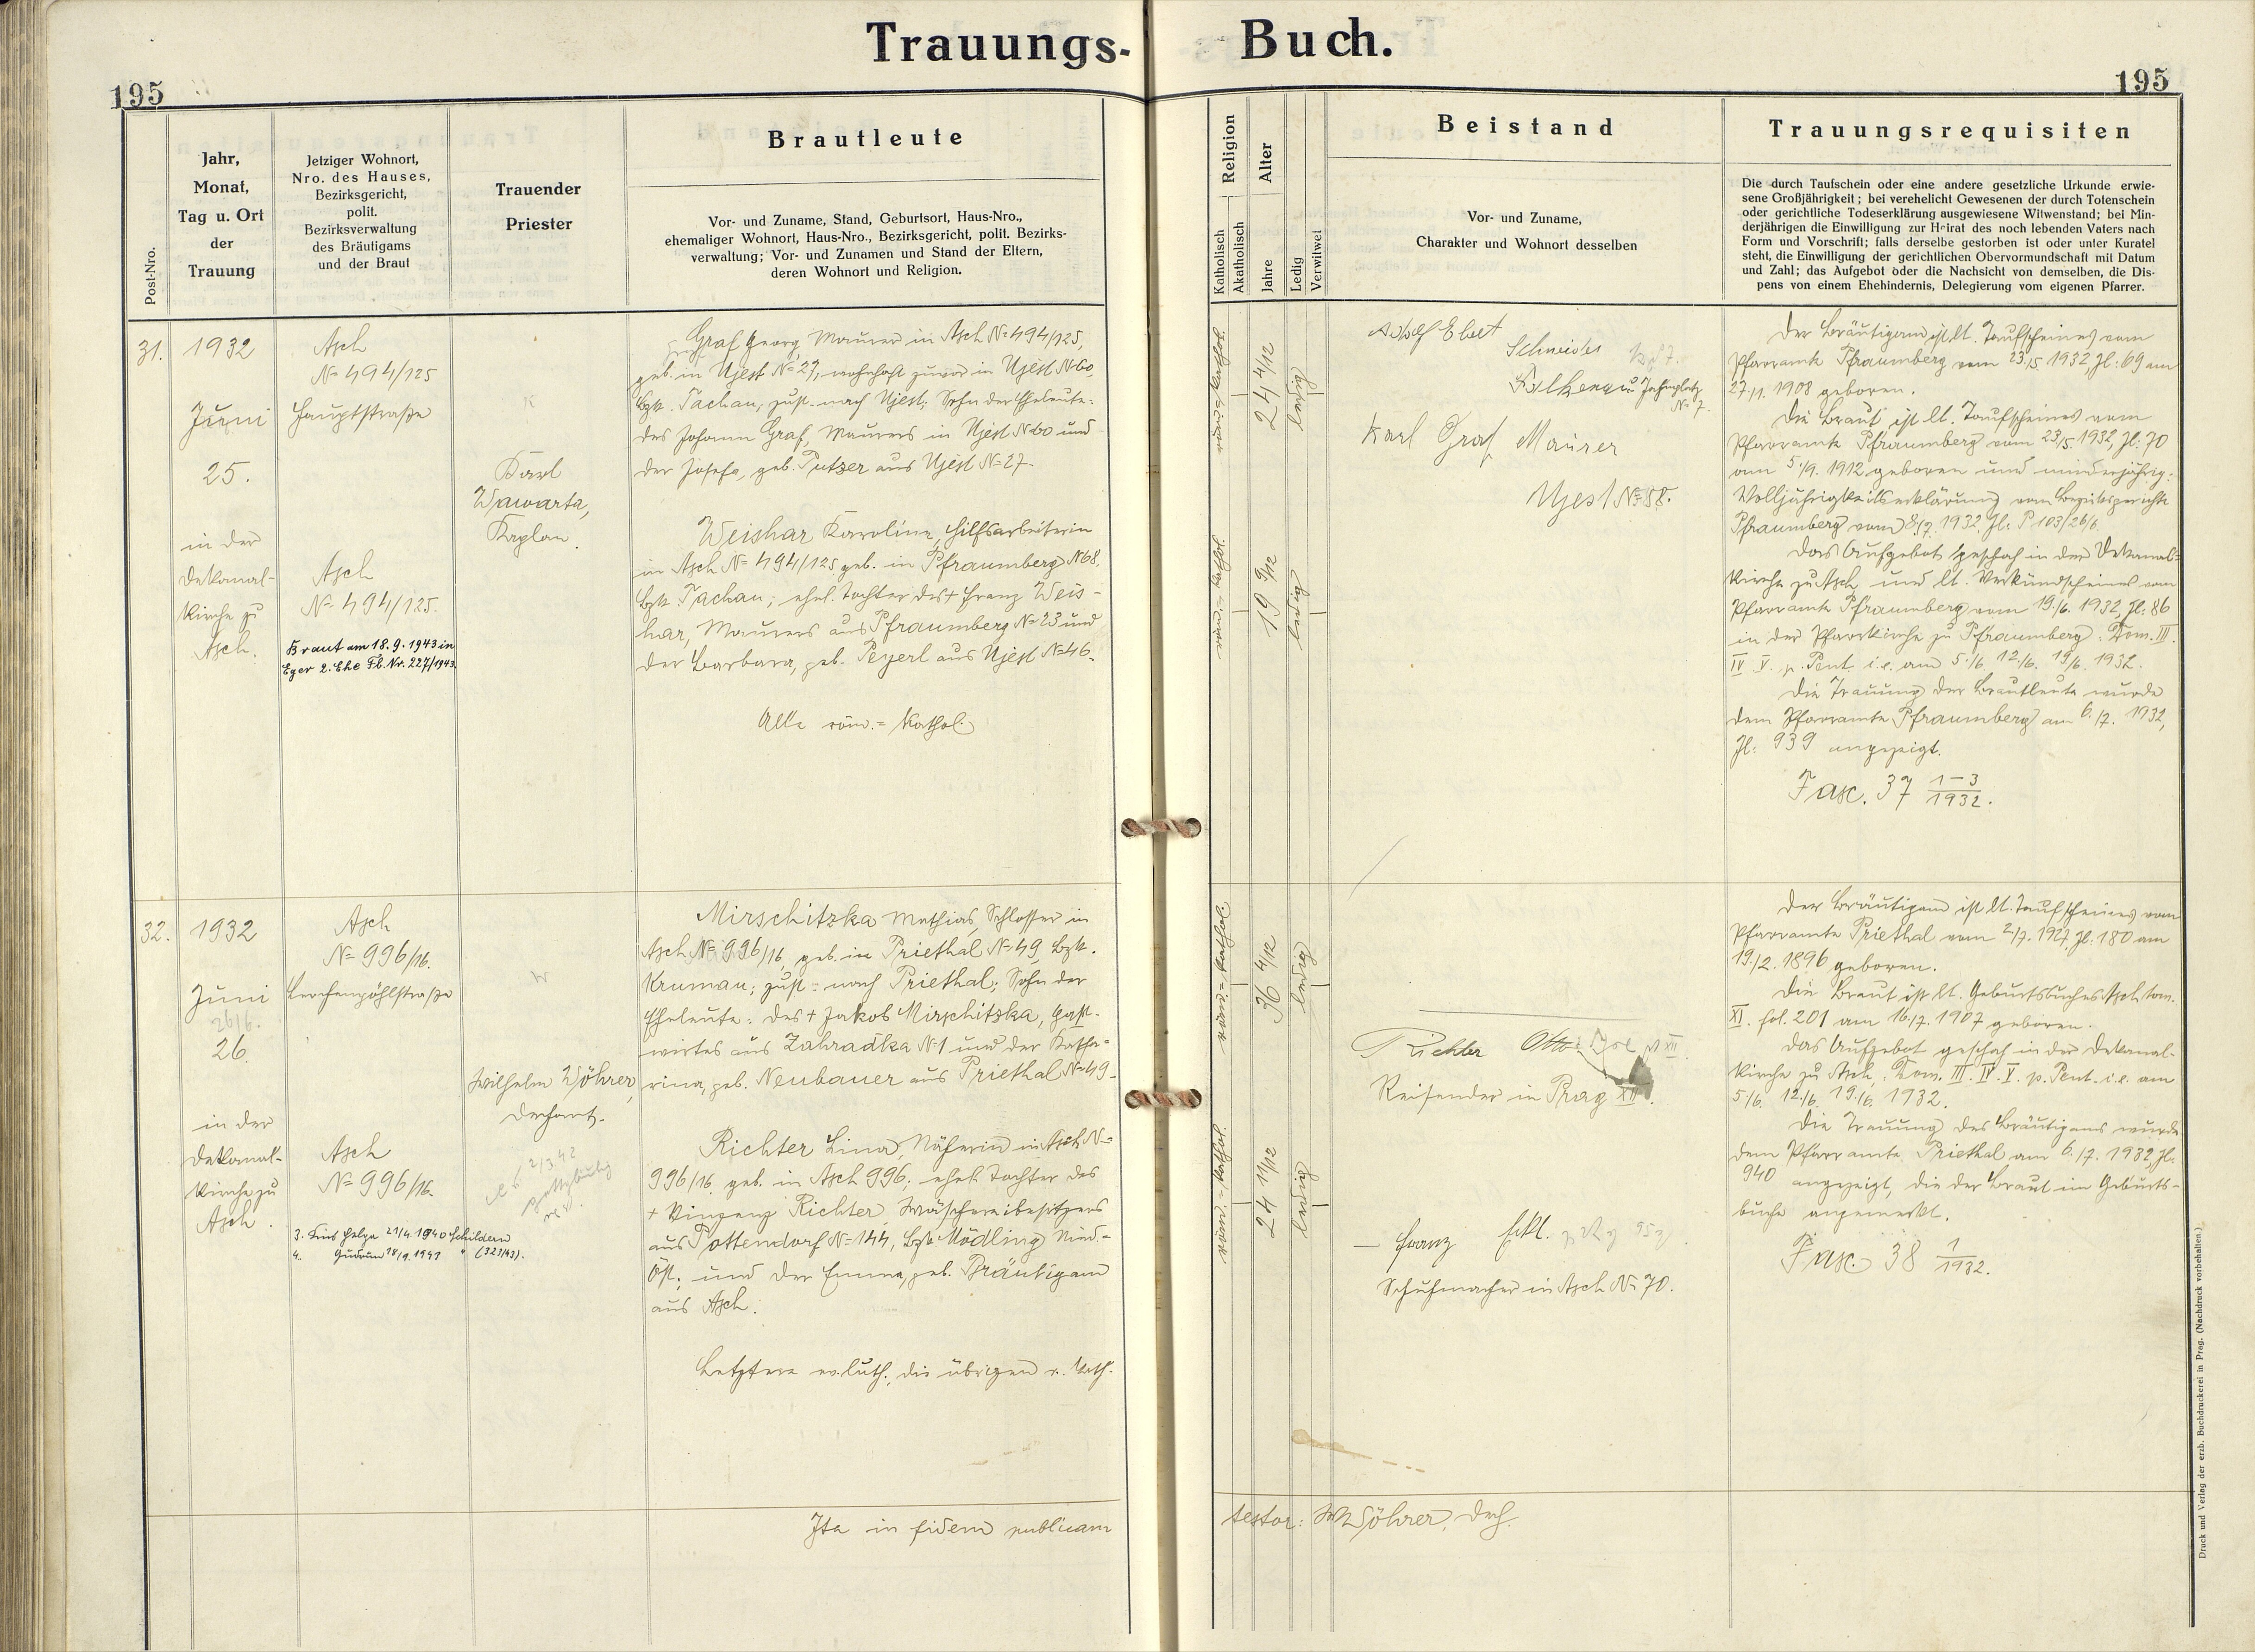 Trauungs-
Buch.
195
195
Post-Nro.
Jahr,
Monat,
Tag u. Ort
der
Trauung
Jetziger Wohnort,
Nro. des Hauses,
Bezirksgericht,
polit.
Bezirksverwaltung
des Bräutigams
und der Braut
Trauender
Priester
Brautleute
Vor- und Zuname, Stand, Geburtsort, Haus-Nro.,
ehemaliger Wohnort, Haus-Nro., Bezirksgericht, polit. Bezirks-
verwaltung; Vor- und Zunamen und Stand der Eltern,
deren Wohnort und Religion.
Religion
Katholisch
Akatholisch
Alter
Jahre
Ledig
Verwitwet
Beistand
Vor- und Zuname,
Charakter und Wohnort desselben
Trauungsrequisiten
Die durch Taufschein oder eine andere gesetzliche Urkunde erwie-
sene Großjährigkeit; bei verehelicht Gewesenen der durch Totenschein
oder gerichtliche Todeserklärung ausgewiesene Witwenstand; bei Min-
derjährigen die Einwilligung zur Heirat des noch lebenden Vaters nach
Form und Vorschrift; falls derselbe gestorben ist oder unter Kuratel
steht, die Einwilligung der gerichtlichen Obervormundschaft mit Datum
und Zahl; das Aufgebot oder die Nachsicht von demselben, die Dis-
pens von einem Ehehindernis, Delegierung vom eigenen Pfarrer.
31.
1932
Juni
25.
in der
Dekanal-
kirche zu
Asch.
Asch
N= 494/125
Hauptstraße
Asch
N= 494/125.
Braut am 18.9.1943 in
Eger 2. Ehe Fb. Nr. 227/1943.
Karl
Wawarta,
Kaplan.
Graf Georg, Maurer in Asch N=494/125,
geb. in Ujest N=27, wohnhaft zuvor in Ujest N=60,
Bzk. Tachau, zust. nach Ujest; Sohn der Eheleute:
des Johann Graf, Maurers in Ujest N=60 und
der Josefa, geb. Putzer aus Ujest N=27.
Weishar Karolina, Hilfsarbeiterin
in Asch N= 494/125 geb. in Pfraumberg N68,
Bzk. Tachau; ehel. Tochter des + Franz Weis-
har, Maurers aus Pfraumberg N=23 und
der Barbara, geb. Peyerl aus Ujest N=46.
Alle röm.=kathol.
röm.=kathol.
24 4/12
ledig
röm.=kathol.
19 9/12
ledig
Adolf Ebert
Schneider
Falkenau Jahnplatz
N= 7.
Karl Graf Maurer
Ujest N=58.
Der Bräutigam ist lt. Taufscheines vom
Pfarramte Pfraumberg vom 23/5. 1932, Zl: 69 am
27./1. 1908 geboren.
Die Braut ist lt. Taufscheines vom
Pfarramte Pfraumberg vom 23/5 1932, Zl: 70
am 5./9. 1912 geboren und minderjährig:
Volljährigkeitserklärung vom Bezirksgerichte
Pfraumberg vom 1932 Zl: P 103/26/6.
Das Aufgebot geschah in der Dekanal-
kirche zu Asch, und lt. Verkündscheines vom
Pfarramte Pfraumberg vom 19./6. 1932, Zl: 86
in der Pfarrkirche zu Pfraumberg: Dom. III.
IV. V. p. Pent. i.e. am 5./6. 12./6. 19/6. 1932.
Die Trauung der Brautleute wurde
dem Pfarramte Pfraumberg am 6./7. 1932,
Zl: 939 angezeigt.
Fasc. 37 1-3/1932.
32.
1932
Juni
26/6.
26.
in der
Dekanal-
kirche zu
Asch.
Asch
N= 996/16.
Lerchenpöhlstraße
Asch
N= 996/16.
3. Kind Helga 21/4. 1940 Schildern
4. Gudrun 18/9. 1943 " (323/43).
Wilhelm Wöhrer,
Dechant.
2/3.42
Mirschitzka Mathias, Schlosser in
Asch N= 996/16, geb. in Priethal N=49, Bzk.
Krumau; zust. nach Priethal; Sohn der
Eheleute: des + Jakob Mirschitzka, Gast-
wirtes aus Zahradka N1 und der Katha-
rina, geb. Neubauer aus Priethal N=49.
Richter Lina, Näherin in Asch N=
996/16, geb. in Asch 996; ehel. Tochter des
+ Vinzenz Richter, Wäschereibesitzers
aus Pottendorf N=144, Bzk. Mödling Nied.-
Öst. und der Emma, geb. Bräutigam
aus Asch.
Letztere ev. luth., die übrigen r. kath.
röm.=kathol.
36 4/12
ledig
röm.=kathol.
24 11/12
ledig
Richter Otto
Reisender in Prag XII.
Franz Eckl.
Schuhmacher in Asch N= 70.
Der Bräutigam ist lt. Taufscheines vom
Pfarramte Priethal vom 2./7. 1927, Zl: 180 am
19./2. 1896 geboren.
Die Braut ist lt. Geburtsbuches Asch, tom.
XI. fol. 201 am 16./7. 1907 geboren.
Das Aufgebot geschah in der Dekanal-
kirche zu Asch: Dom. III. IV. V. p. Pent. i.e. am
5./6. 12./6. 19./6. 1932.
Die Trauung des Bräutigams wurde
dem Pfarramte Priethal am 6./7. 1932, Zl.
940 angezeigt, die der Braut im Geburts-
buche angemerkt.
Fasc. 38 1/1932.
Ita in fidem publicam
testor: W. Wöhrer, Dech.
Druck und Verlag der erzb. Buchdruckerei in Prag. (Nachdruck vorbehalten.)